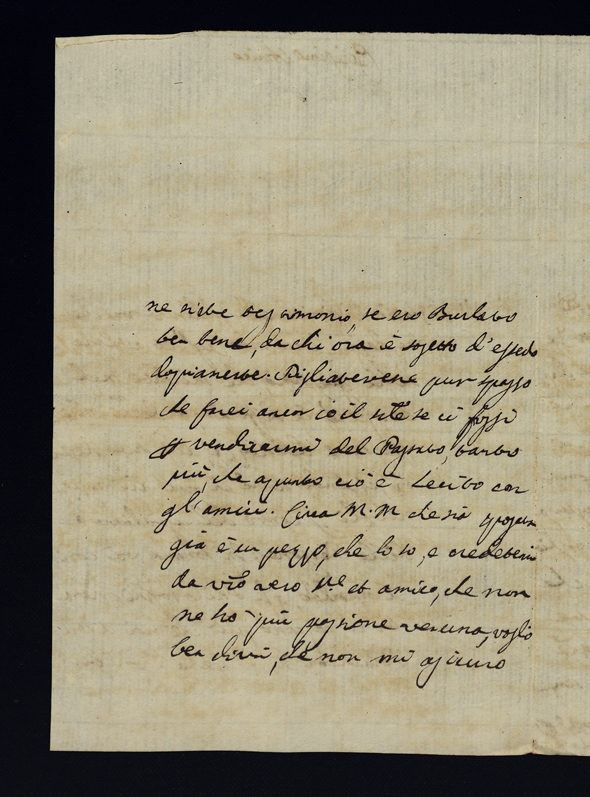 ne siete testimonio se ero Burlato
ben bene, da chi ora è sogetto d'esserlo
dopiamente. Pigliatevene pur spasso
che farei ancor io il se ci fossi
vendicarmi del Passato, tanto
più, che apunto ciò è Lecito con
gl'amici. Circa M. M che sia sposata
già è un pezzo, che lo so, e credetemi
da vro vero Se. et amico, che non
ne ho più passione veruna, voglio
ben dirvi, che non mi